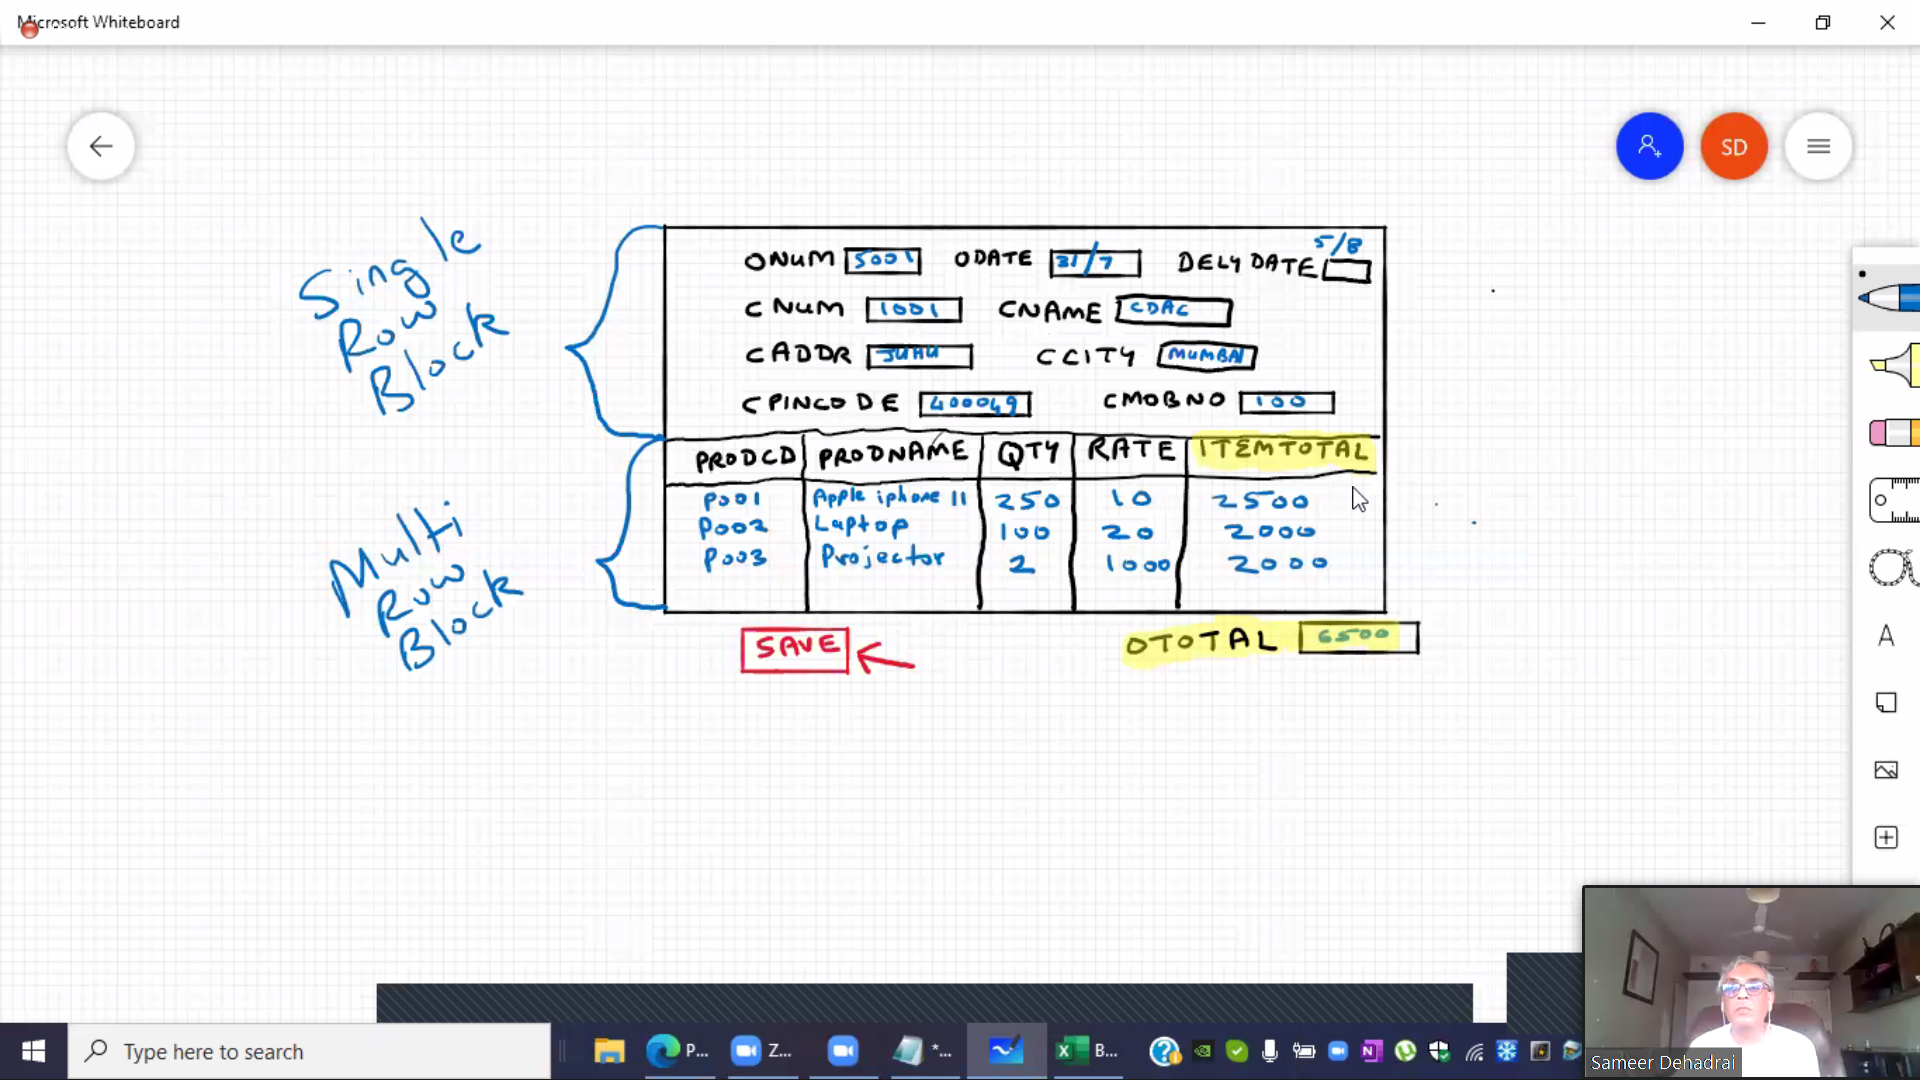 Microsoft Whiteboard
SD
Single
Row
Block
ONUM 5001 ODATE 31/7 DELYDATE 5/8
CNUM 1001 CNAME CDAC
CADDR JUHU CCITY MUMBAI
CPINCODE 400049 CMOBNO 100
PRODCD PRODNAME QTY RATE ITEMTOTAL
P001 Apple iphone 11 250 10 2500
P002 Laptop 100 20 2000
P003 Projector 2 1000 2000
Multi
Row
Block
SAVE OTOTAL 6500
A
Type here to search
P...
Z...
*...
B...
Sameer Dehadrai